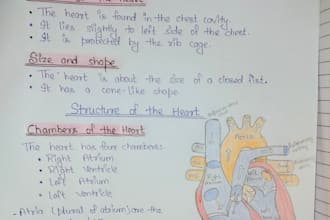 of the Heart
• The heart is found in the chest cavity.
• It lies slightly to left side of the chest.
• It is protected by the rib cage.
Size and shape
• The heart is about the size of a closed fist.
• It has a cone-like shape.
Structure of the Heart
Chambers of the Heart
The heart has four chambers:
• Right Atrium
• Right Ventricle
• Left Atrium
• Left Ventricle
- Atria (plural of atrium) are the
Aorta